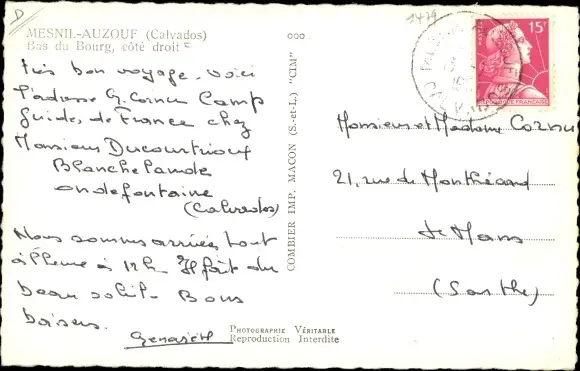 D
MESNIL-AUZOUF (Calvados)
Bas du Bourg, côté droit
très bon voyage. voici
l'adresse G. Cornu Camp
Guides de France chez
Monsieur Ducourtrioux
Blanchelande
ondefontaine
(Calvados)
Nous sommes arrivés tout
à l'heure à 12h. Il fait du
beau soleil. Bons
baisers.
COMBIER IMP. MACON (S.-et-L.) "CIM"
PHOTOGRAPHIE VÉRITABLE
Reproduction Interdite
000
1479
15F
POSTES
REPUBLIQUE FRANÇAISE
Monsieur et Madame Cornu
21, rue de Monthéard
Le Mans
(Sarthe)